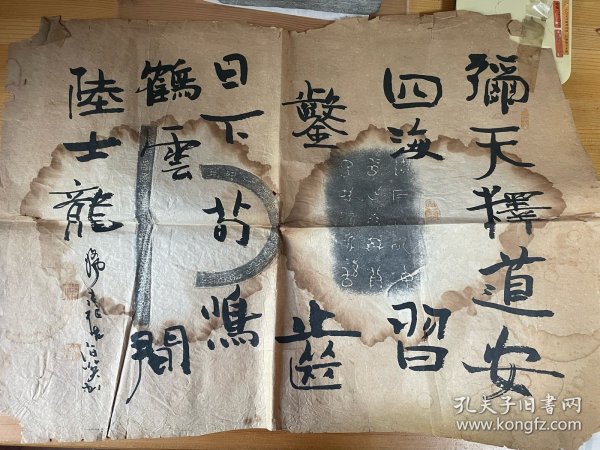 彌天釋道安
四海習
鑿齒
日下荀鳴
鶴雲間
陸士龍
孔夫子旧书网